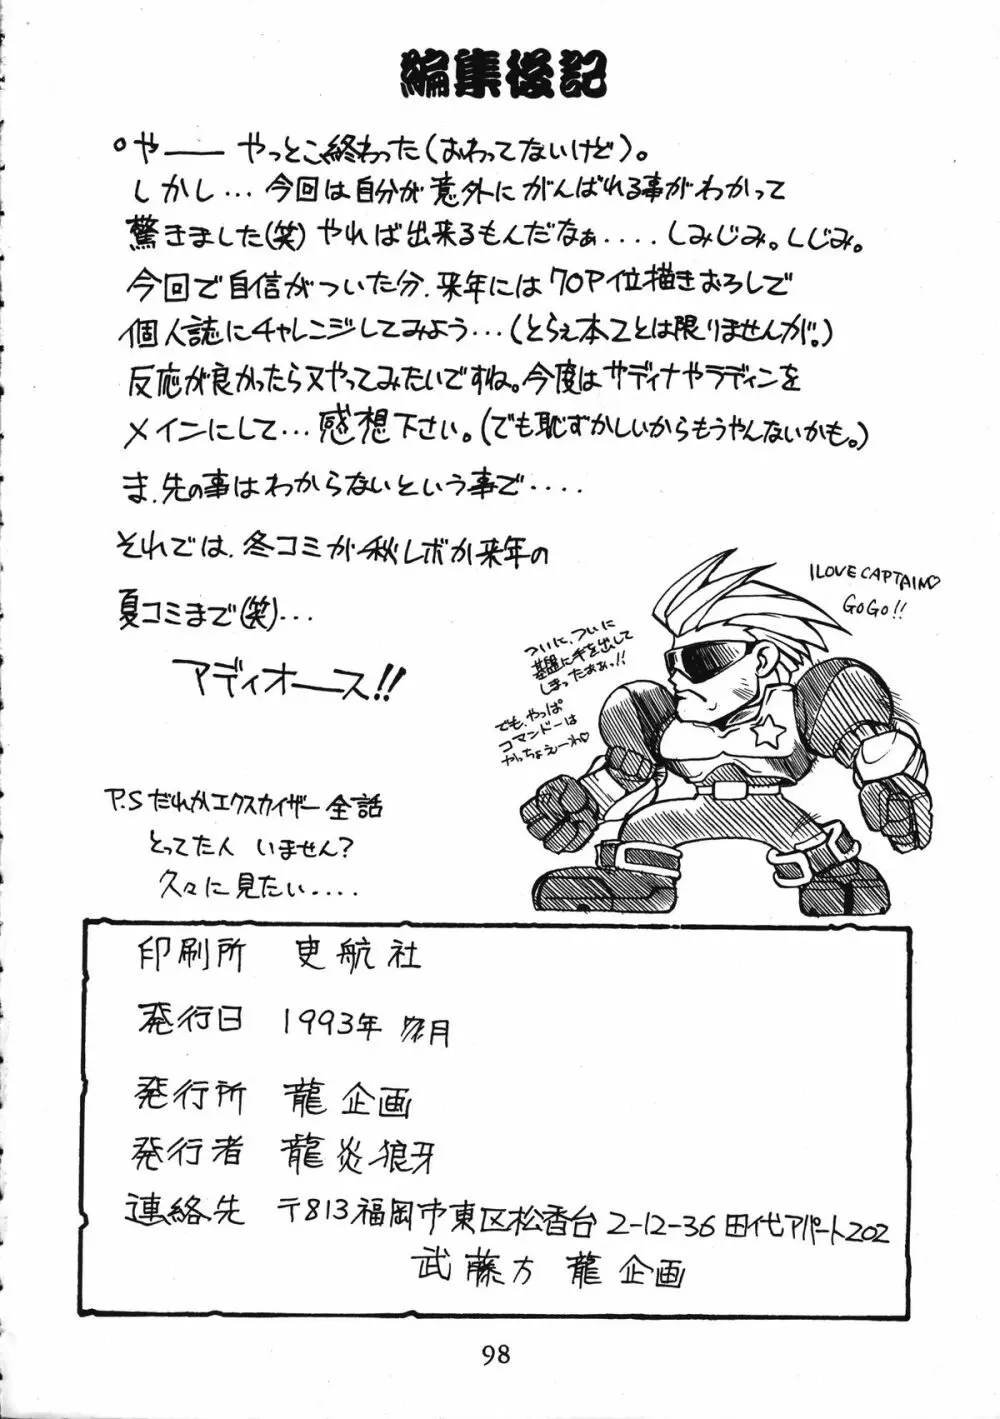 編集後記
。や── やっとこ終わった(おわってないけど)。
しかし…今回は自分が意外にがんばれる事がわかって
驚きました(笑)やれば出来るもんだなぁ....しみじみ。しじみ。
今回で自信がついた分、来年には70P位描きおろしで
個人誌にチャレンジしてみよう…(とらぇ本とは限りませんが。)
反応が良かったら又やってみたいですね。今度はサディナやラディンを
メインにして…感想下さい。(でも恥ずかしいからもうやんないかも。)
ま、先の事はわからないという事で....
それでは、冬コミか秋レボか来年の
夏コミまで(笑)…
アディオース!!
I LOVE CAPTAIN♡
GOGO!!
ついに、ついに
基盤に手を出して
しまったぁぁっ!!
でも、やっぱ
コマンドーは
かっちょえーわ♡
P.S だれかエクスカイザー全話
とってた人 いません?
久々に見たい....
印刷所 史航社
発行日 1993年 月
発行所 龍企画
発行者 龍炎狼牙
連絡先 〒813福岡市東区松香台2-12-36田代アパート202
武藤方 龍企画
98